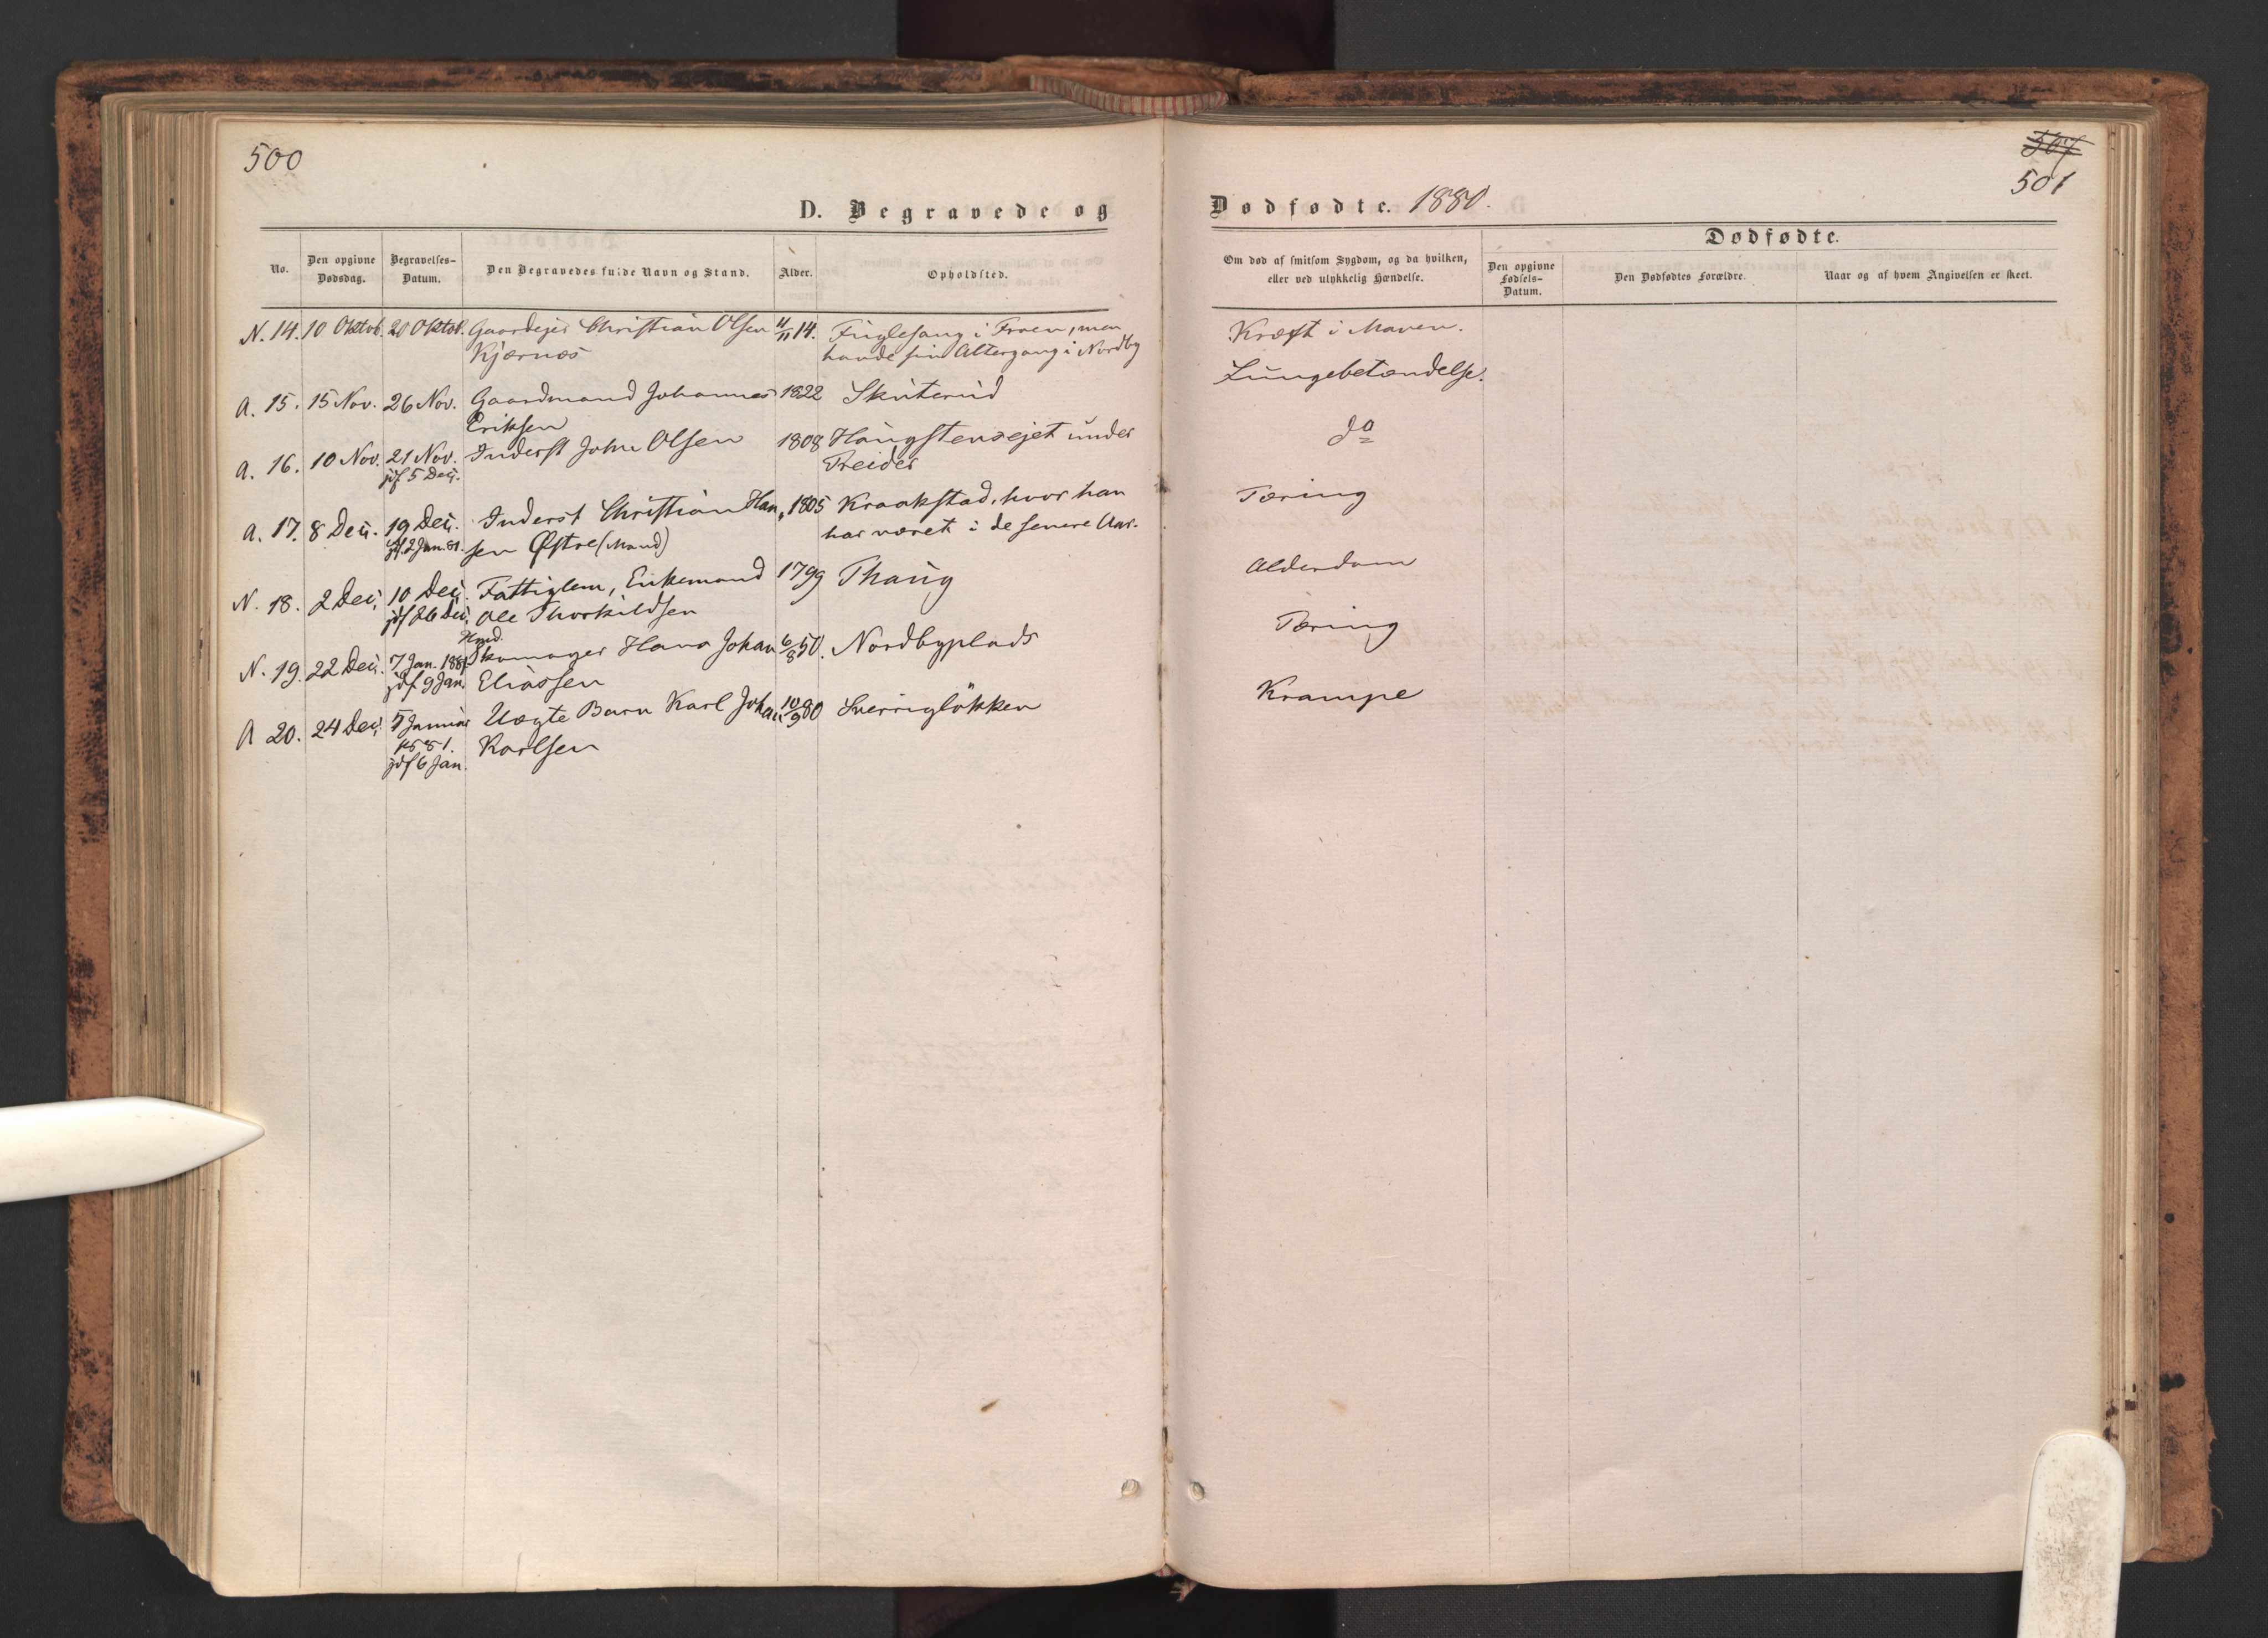 500
D. Begravede og
No.
Den opgivne Dødsdag.
Begravelses-Datum.
Den Begravedes fulde Navn og Stand.
Alder.
Opholdsted.
N. 14. 10 Oktob. 20 Oktob. Gaardejer Christian Olsen 11/11 14. Fuglesang i Froen, men
Kjærnæs havde sin Altergang i Nordby
A. 15. 15 Nov. 26 Nov. Gaardmand Johannes 1822 Skuterud
Eriksen
A. 16. 10 Nov. 21 Nov. Inderst John Olsen 1808 Haugstensejet under
jdf 5 Dec. Treider
A. 17. 8 Dec. 19 Dec. Inderst Christian Han- 1805 Kraakstad, hvor han
jdf 2 Jan. 81. sen Østre (Mand) har været i de senere Aar.
N. 18. 2 Dec. 10 Dec. Fattiglem, Enkemand 1799 Thaug
jdf 26 Dec. Ole Thorkildsen
N. 19. 22 Dec. 7 Jan. 1881 Skomager Hans Johan 6/8 50. Nordbyplads
jdf 9 Jan. Eliassen
A 20. 24 Dec. 5 Januar Uægte Barn Karl Johan 10/9 80 Sverrigløkken
1881. Karlsen
jdf 6 Jan.
507
501
Dødfødte. 1880.
Om død af smitsom Sygdom, og da hvilken,
eller ved ulykkelig Hændelse.
Dødfødte.
Den opgivne Fødsels-Datum.
Den Dødfødtes Forældre.
Naar og af hvem Angivelsen er skeet.
Kræft i Maven.
Lungebetændelse.
do
Tæring
Alderdom
Tæring
Krampe